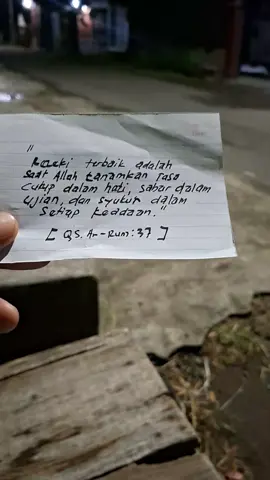 "
Rezeki terbaik adalah
saat Allah tanamkan rasa
cukup dalam hati, sabar dalam
ujian, dan syukur dalam
setiap keddaan."
[ QS. Ar-Rum: 37 ]